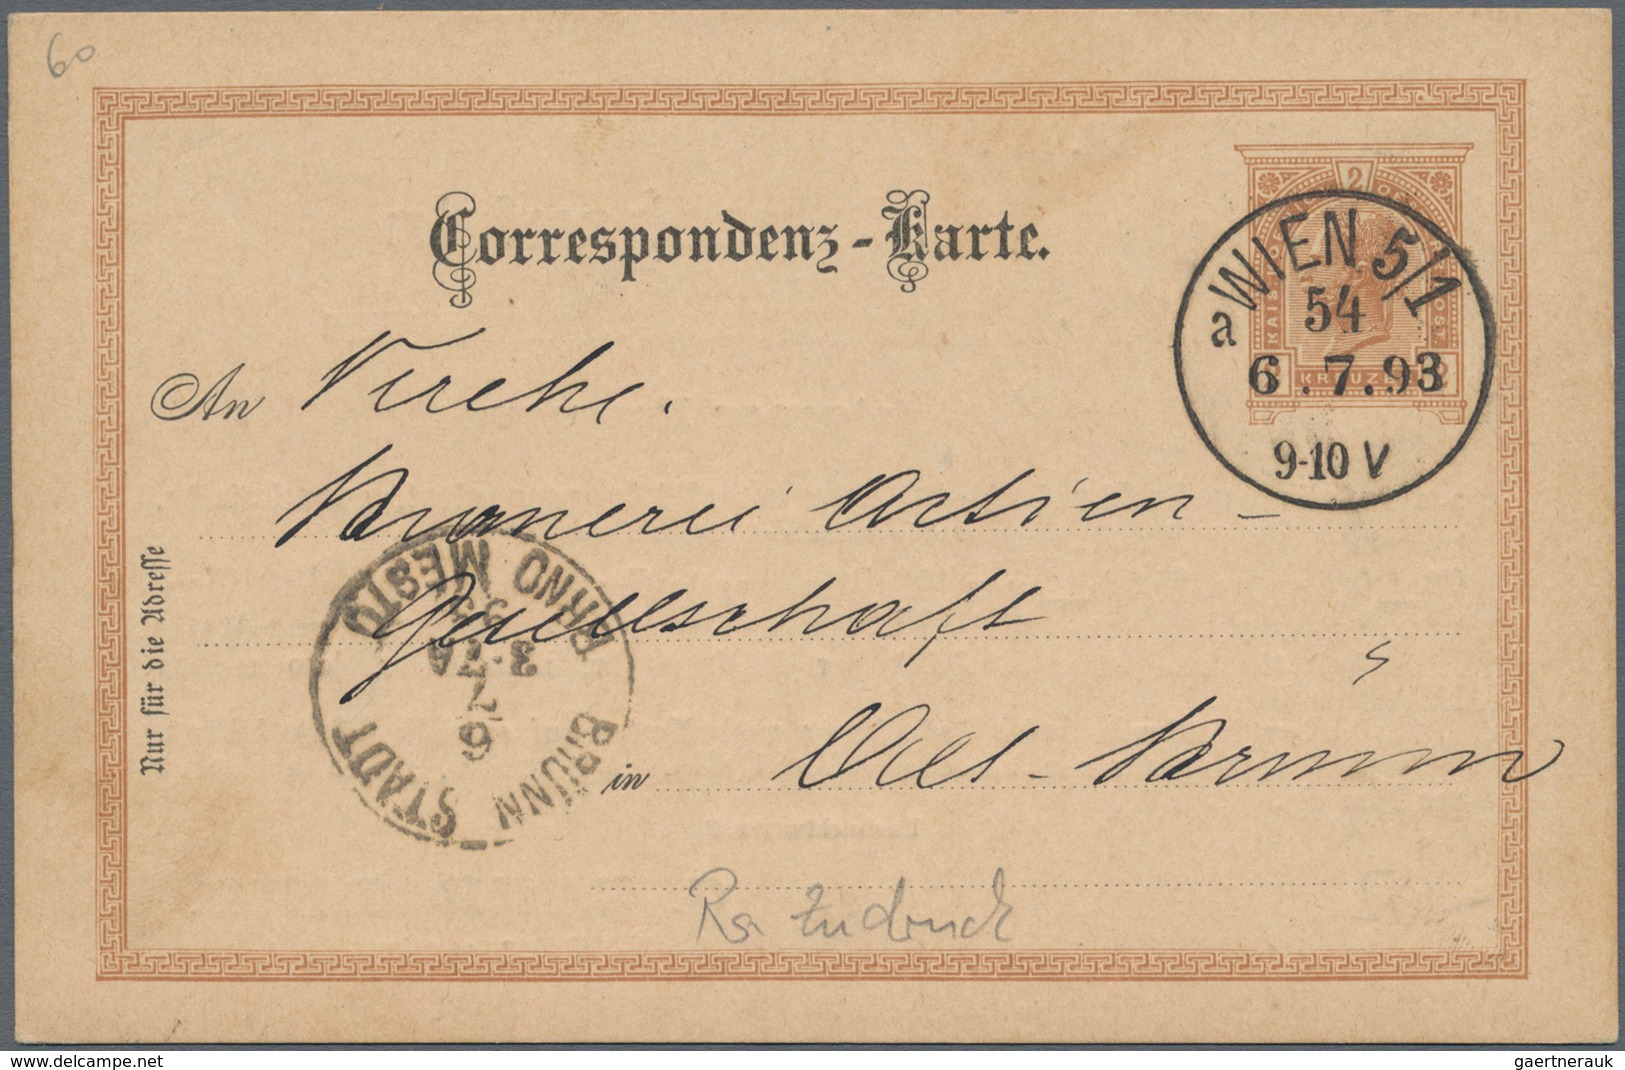 60
Correspondenz-Karte.
2
KREUZER
a WIEN 5/1
54
6.7.93
9-10 V
An
Brauerei Actien-
Gesellschaft
in
Brünn
Nur für die Adresse
BRNO MĚSTO
93
3.7A
6/7
BRÜNN STADT
Rs. Zudruck
gaertnerauk @ www.delcampe.net